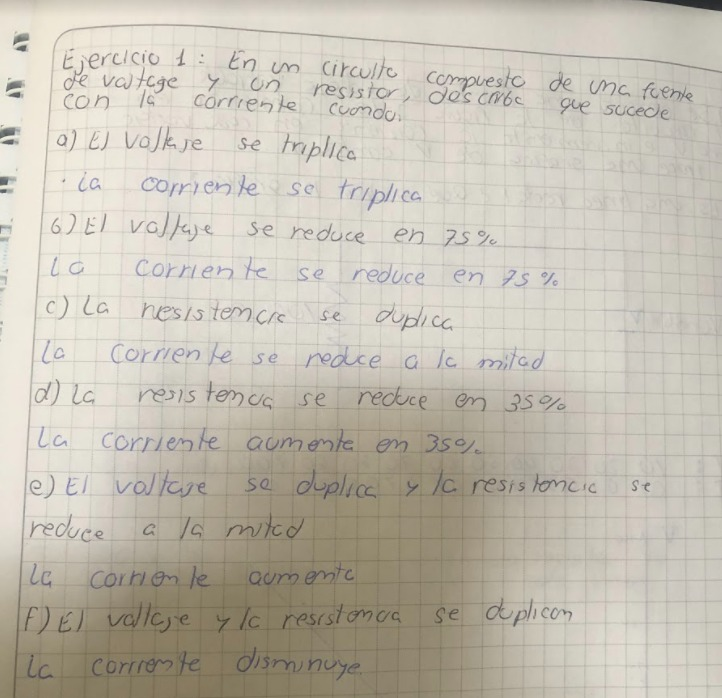 Ejercicio 1: En un circuito compuesto de una fuente
de voltage y un resistor, describe que sucede
con la corriente cuando:
a) El voltaje se triplica
. la corriente se triplica
b) El voltaje se reduce en 75%
La corriente se reduce en 75%
c) La resistencia se duplica
La corriente se reduce a la mitad
d) La resistencia se reduce en 35%
La corriente aumenta en 35%.
e) El voltaje se duplica y la resistencia se
reduce a la mitad
La corriente aumenta
f) El voltaje y la resistencia se duplican
La corriente disminuye